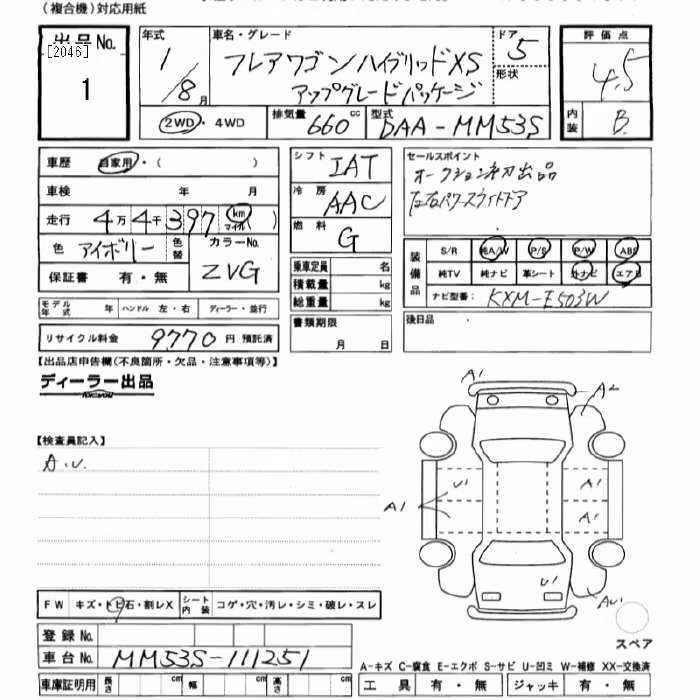 （複合機）対応用紙
出品No.
[2046]
1
年式 1/8月
車名・グレード フレアワゴン ハイブリッドXS
アップグレードパッケージ
ドア 5
形状
評価点 4.5
内装 B
2WD ・ 4WD
排気量 660 cc
型式 DAA-MM53S
車歴 自家用・（ ）
車検 年 月
走行 4万4千397 km マイル ( )
色 アイボリー
色替
カラーNo. ZVG
保証書 有・無
モデル年式 年 ハンドル 左・右 ディーラー・並行
リサイクル料金 9770 円 預託済
シフト IAT
冷房 AAC
燃料 G
乗車定員 名
積載量 kg
総重量 kg
書類期限 月 日
セールスポイント
オークション初出品
左右パワースライドドア
装備品
S/R 純A/W P/S P/W ABS
純TV 純ナビ 革シート 外ナビ エアB
ナビ型番: KXM-E503W
後日品
【出品店申告欄(不良箇所・欠品・注意事項等)】
ディーラー出品
【検査員記入】
A.U.
A1
A2
U1
A1
A1
A1
U1
AU1
スペア
FW キズ・トビ石・割レX
シート内装 コゲ・穴・汚レ・シミ・破レ・スレ
登録No.
車台No. MM53S-111251
A-キズ C-腐食 E-エクボ S-サビ U-凹ミ W-補修 XX-交換済
車庫証明用 長さ cm 幅 cm 高さ cm
工具 有・無 ジャッキ 有・無